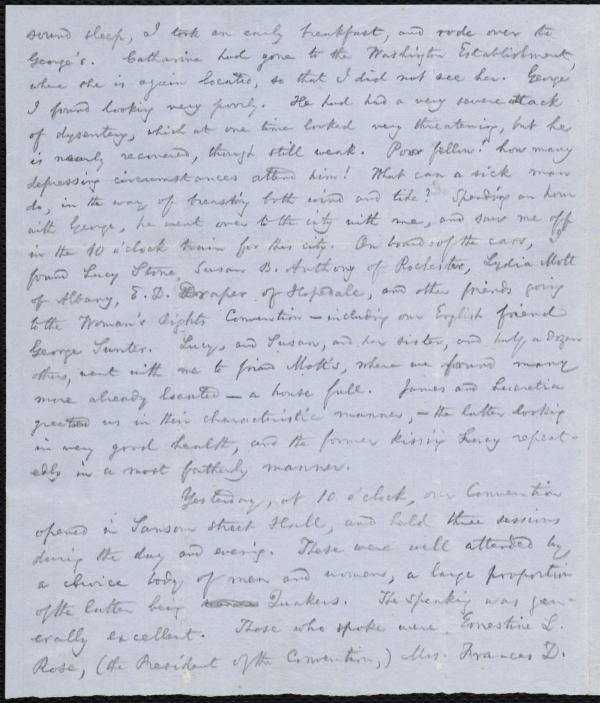 sound sleep, I took an early breakfast, and rode over to
George's. Catharine had gone to the Washington Establishment,
where she is again located, so that I did not see her. George
I found looking very poorly. He had had a very severe attack
of dysentery, which at one time looked very threatening, but he
is nearly recovered, though still weak. Poor fellow! how many
depressing circumstances attend him! What can a sick man
do, in the way of breasting both wind and tide? Spending an hour
with George, he went over to the city with me, and saw me off
in the 10 o'clock train for this city. On board of the cars, I
found Lucy Stone, Susan B. Anthony of Rochester, Lydia Mott
of Albany, E. D. Draper of Hopedale, and other friends going
to the Woman's Rights Convention — including our English friend
George Sunter. Lucy, and Susan, and her sister, and half a dozen
others, went with me to friend Mott's, where we found many
more already located — a house full. James and Lucretia
greeted us in their characteristic manner, — the latter looking
in very good health, and the former kissing Lucy repeat-
edly in a most fatherly manner.
Yesterday, at 10 o'clock, our Convention
opened in Sansom Street Hall, and held three sessions
during the day and evening. These were well attended by
a choice body of men and women, a large proportion
of the latter being Quakers. The speaking was gen-
erally excellent. Those who spoke were Ernestine L.
Rose, (the President of the Convention,) Mrs. Frances D.